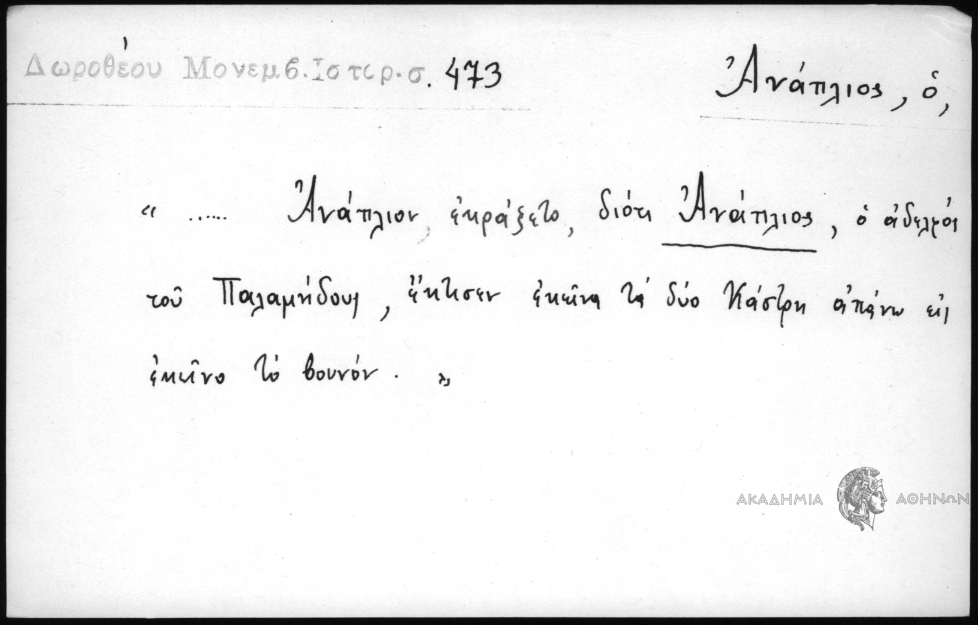 Δωροθέου Μονεμβ. Ιστορ. σ. 473
Ἀνάπλιος, ὁ,
« ..... Ἀνάπλιον, ἐκράζετο, διότι Ἀνάπλιος, ὁ ἀδελφός
τοῦ Παλαμήδους, ἔκτισεν ἐκεῖνα τά δύο Κάστρη ἀπάνω εἰς
ἐκεῖνο τό βουνόν. »
ΑΚΑΔΗΜΙΑ ΑΘΗΝΩΝ